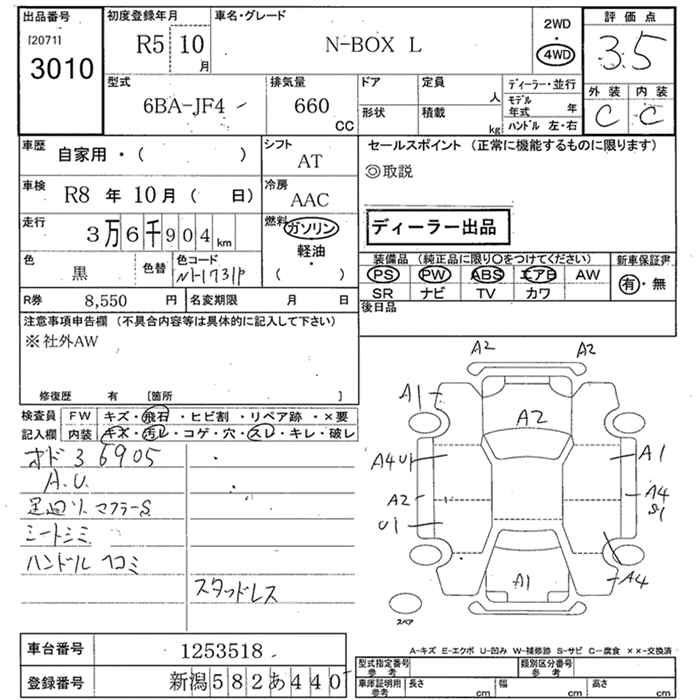 出品番号
[2071]
3010
初度登録年月
R5 10
月
車名・グレード
N-BOX L
2WD
・
4WD
評価点
3.5
外装 内装
C C
型式
6BA-JF4
排気量
660
cc
ドア
形状
定員
人
積載
kg
ディーラー・並行
モデル年式 年
ハンドル 左・右
車歴
自家用・( )
シフト
AT
車検
R8 年 10 月 ( 日)
冷房
AAC
走行
3万6千904km
燃料
ガソリン
軽油
・
( )
色
黒
色替
色コード
NH731P
R券 8,550 円
名変期限 月 日
セールスポイント (正常に機能するものに限ります)
◎取説
ディーラー出品
装備品 (純正品に限り○をつけてください)
PS PW ABS エアB AW
SR ナビ TV カワ
新車保証書
有・無
後日品
注意事項申告欄 (不具合内容等は具体的に記入して下さい)
※社外AW
修復歴 有 [箇所 ]
検査員記入欄
FW キズ・飛石・ヒビ割・リペア跡・×要
内装 キズ・汚レ・コゲ・穴・スレ・キレ・破レ
オド 36905
A.U.
足廻リ、マフラーS
シートシミ
ハンドル ヘコミ
スタッドレス
A2 A2
A1
A2
A4 U1
A1
A2
A4
S1
U1
A1
A4
スペア
A-キズ E-エクボ U-凹み W-補修跡 S-サビ C-腐食 ××-交換済
車台番号 1253518
登録番号 新潟582あ440
型式指定番号 参考
類別区分番号 参考
車庫証明用 参考
長さ cm
幅 cm
高さ cm